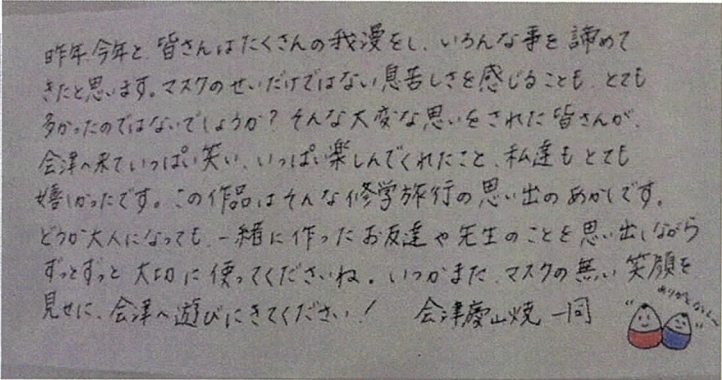 昨年、今年と、皆さんはたくさんの我慢をし、いろんな事を諦めて
きたと思います。マスクのせいだけではない息苦しさを感じることも、とても
多かったのではないでしょうか？そんな大変な思いをされた皆さんが、
会津へ来ていっぱい笑い、いっぱい楽しんでくれたこと、私達もとても
嬉しかったです。この作品はそんな修学旅行の思い出のあかしです。
どうか大人になっても、一緒に作ったお友達や先生のことを思い出しながら
ずっとずっと大切に使ってくださいね。いつかまた、マスクの無い笑顔を
見せに、会津へ遊びにきてください！ 会津慶山焼 一同